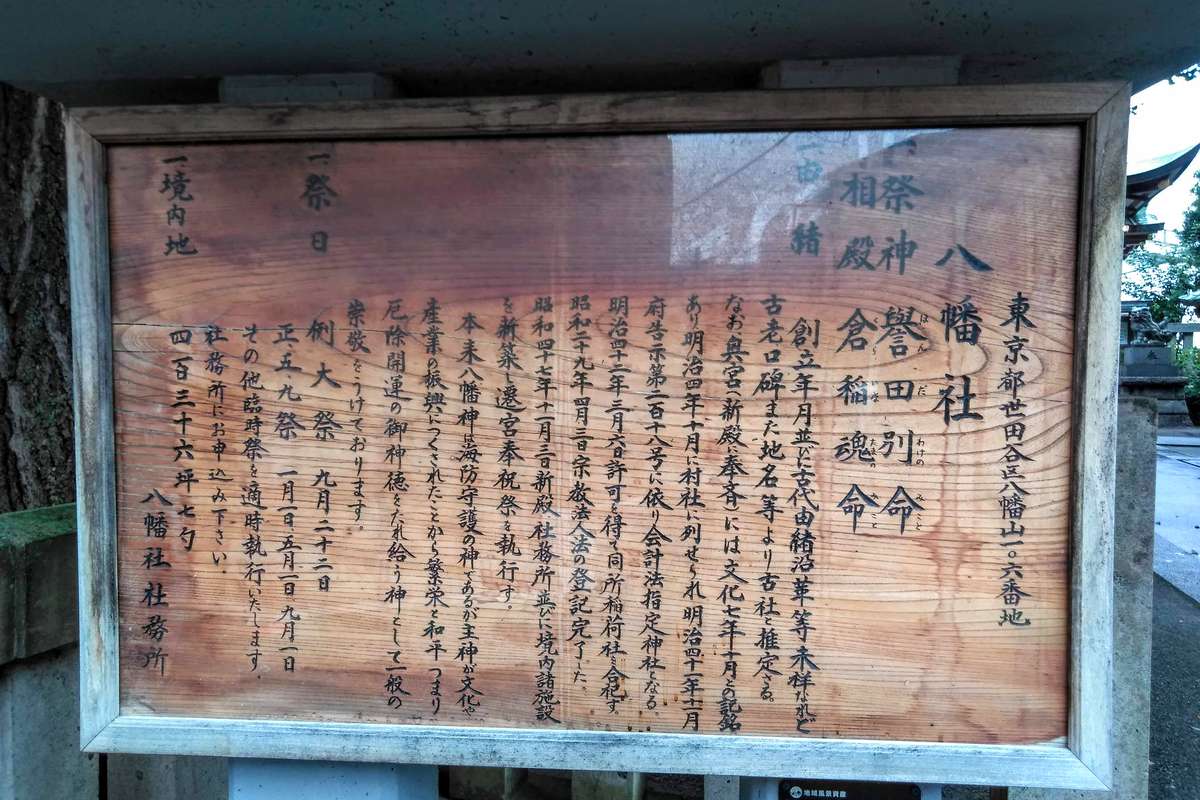 東京都世田谷区八幡山一ー〇六番地
八幡社
一、祭神 譽田別命
ほんだわけのみこと
相殿 倉稲魂命
くらいなたまのみこと
一、由緒
創立年月並びに古代由緒沿革等未祥なれど
古老口碑また地名等より古社と推定さる。
なお奥宮(新殿に奉斉)には文化七年十月との記銘
あり明治四年十月に村社に列せられ明治四十一年十一月
府告示第二百十八号に依り会計法指定神社となる。
明治四十二年三月六日許可を得て同所稲荷社を合祀す
昭和二十九年四月三日宗教法人法の登記完了した。
昭和四十七年十一月三日新殿社務所並びに境内諸施設
を新築し遷宮奉祝祭を執行す。
本来八幡神は海防守護の神であるが主神が文化や
産業の振興につくされたことから繁栄と和平つまり
厄除開運の御神徳をたれ給う神として一般の
崇敬をうけております。
一、祭日
例大祭 九月二十三日
正五九祭 一月一日五月一日九月一日
その他臨時祭を適時執行いたします。
社務所にお申込み下さい。
一、境内地
四百三十六坪七勺
八幡社社務所
地域風景資産